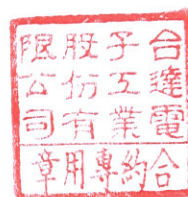 台達電
子工業
股份有
限公司
合約專用章